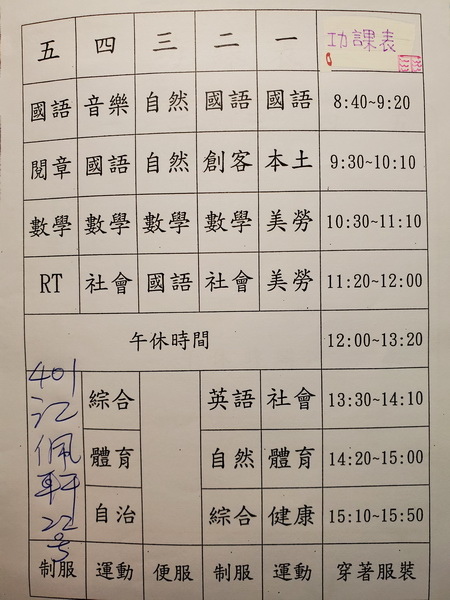 五 四 三 二 一 功課表
國語 音樂 自然 國語 國語 8:40~9:20
閱章 國語 自然 創客 本土 9:30~10:10
數學 數學 數學 數學 美勞 10:30~11:10
RT 社會 國語 社會 美勞 11:20~12:00
午休時間 12:00~13:20
綜合 英語 社會 13:30~14:10
體育 自然 體育 14:20~15:00
自治 綜合 健康 15:10~15:50
401
江
佩
軒
22
号
制服 運動 便服 制服 運動 穿著服裝